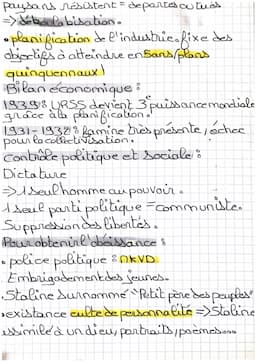 paysans résistent = déportés ou tués
=> dékoulakisation.
• planification de l'industrie. fixe des
objectifs à atteindre en 5ans (plans
quinquennaux)
Bilan économique :
1939 : URSS devient 3e puissance mondiale
grâce à la planification.
1931-1932 : famine très présente, échec
pour la collectivisation.
Contrôle politique et sociale :
Dictature
=> 1 seul homme au pouvoir.
1 seul parti politique = communiste.
Suppression des libertés.
Pour obtenir l'obéissance :
• police politique : NKVD
Embrigadement des jeunes.
• Staline surnommé "Petit père des peuples"
• existance culte de personnalité => Staline
assimilé à un dieu, portraits, poèmes...